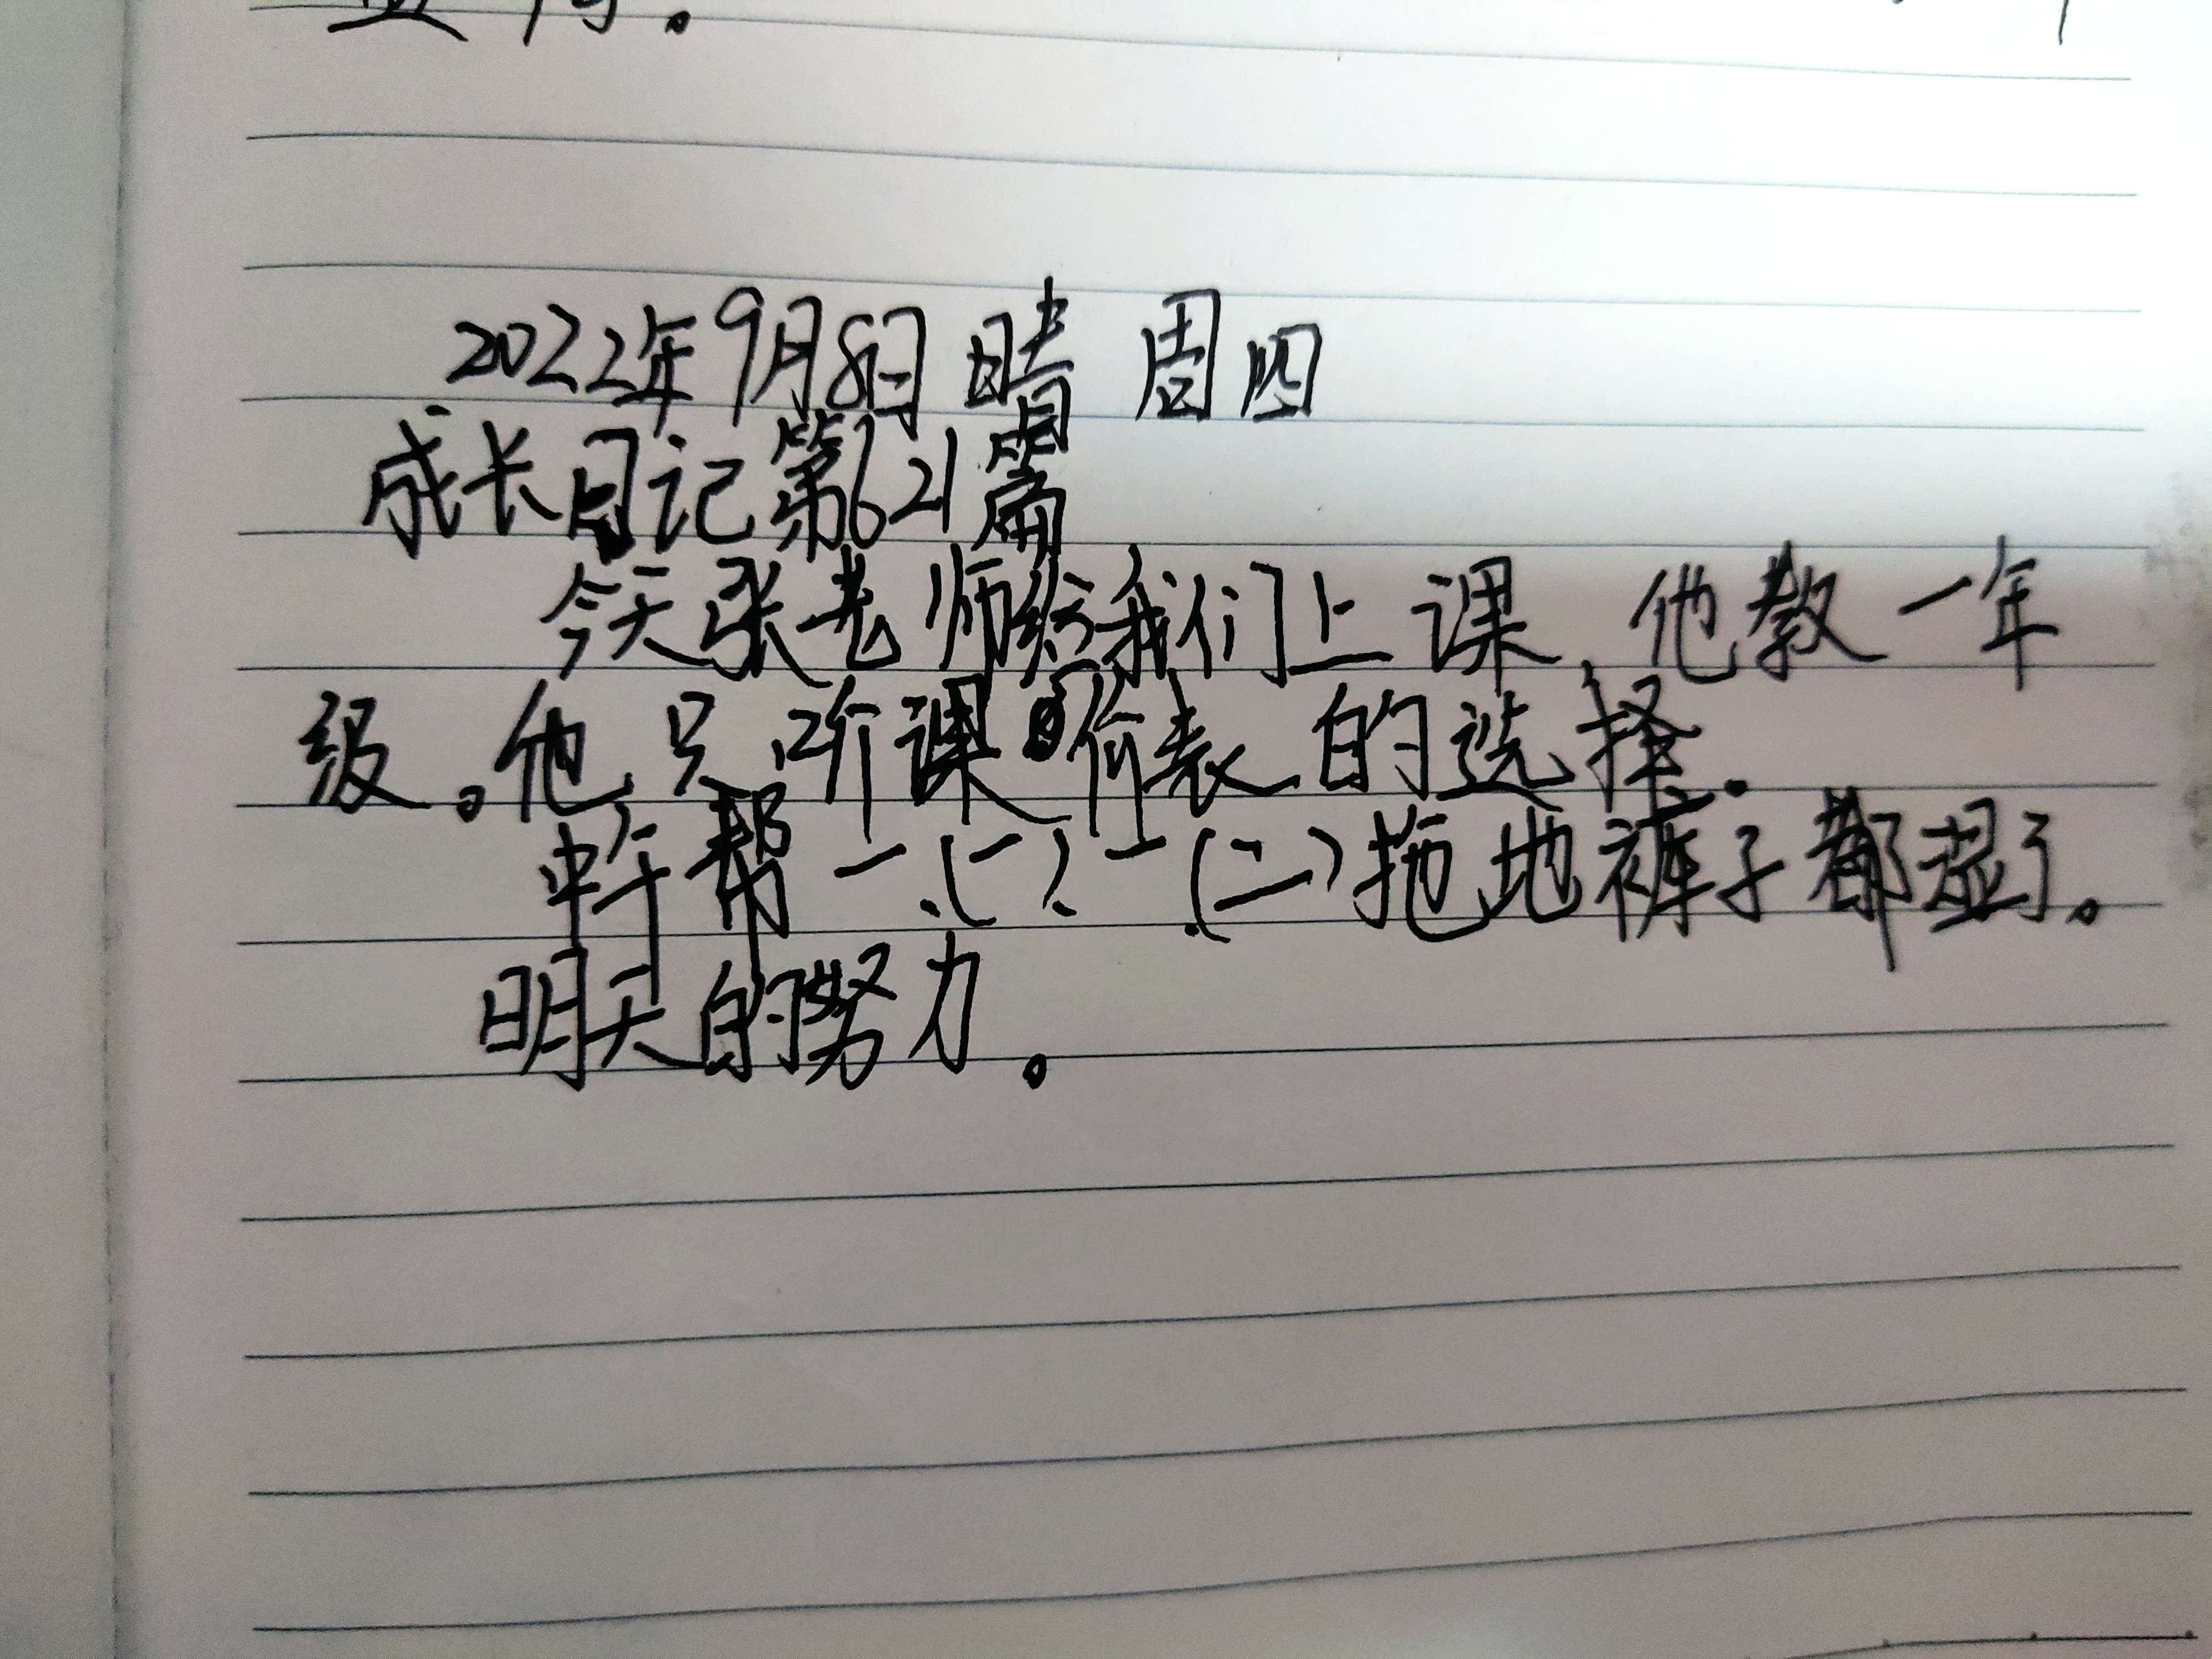 2022年9月8日 晴 周四
成长日记第621篇
今天张老师给我们上课，他教一年
级。他只听课何表的选择.
中午帮一.(一).一.(二)拖地裤子都湿了。
明天的努力。